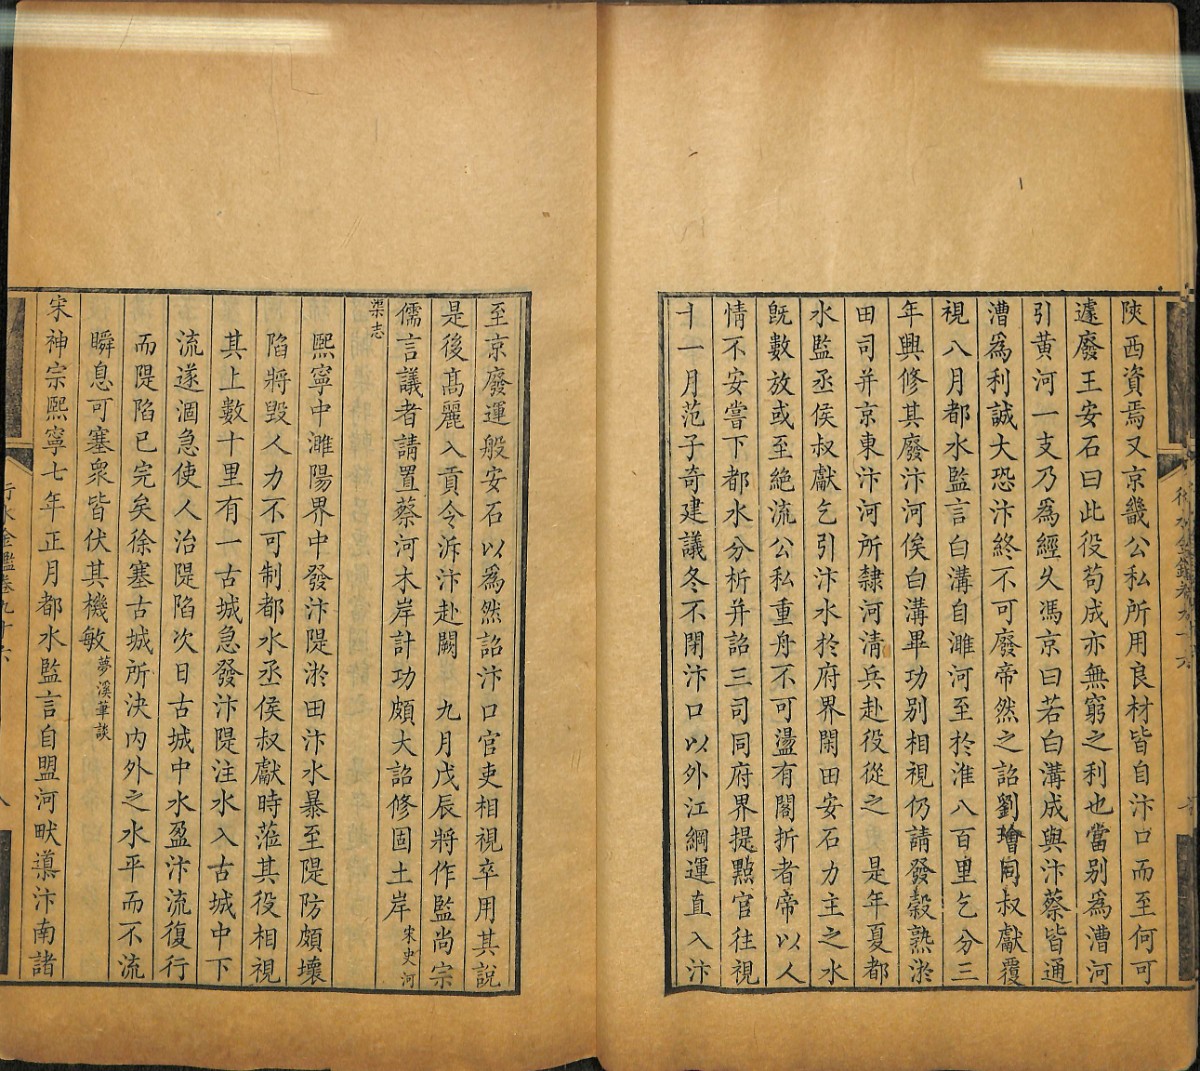 陜西資焉又京畿公私所用良材皆自汴口而至何可
遽廢王安石曰此役苟成亦無窮之利也當別爲漕河
引黃河一支乃爲經久馮京曰若白溝成與汴蔡皆通
漕爲利誠大恐汴終不可廢帝然之詔劉璯同叔獻覆
視八月都水監言白溝自濉河至於淮八百里乞分三
年興修其廢汴河俟白溝畢功別相視仍請發穀熟淤
田司并京東汴河所隸河清兵赴役從之 是年夏都
水監丞侯叔獻乞引汴水於府界閑田安石力主之水
旣數放或至絶流公私重舟不可盪有閣折者帝以人
情不安嘗下都水分析并詔三司同府界提點官往視
十一月范子奇建議冬不閉汴口以外江綱運直入汴
至京廢運般安石以爲然詔汴口官吏相視卒用其說
是後髙麗入貢令泝汴赴闕 九月戊辰將作監尚宗
儒言議者請置蔡河木岸計功頗大詔修固土岸宋史河
渠志
熙寧中濉陽界中發汴隄淤田汴水暴至隄防頗壞
陷將毀人力不可制都水丞侯叔獻時蒞其役相視
其上數十里有一古城急發汴隄注水入古城中下
流遂涸急使人治隄陷次日古城中水盈汴流復行
而隄陷已完矣徐塞古城所決内外之水平而不流
瞬息可塞衆皆伏其機敏夢溪筆談
宋神宗熙寧七年正月都水監言自盟河畎導汴南諸
行水金鑑卷九十六
八